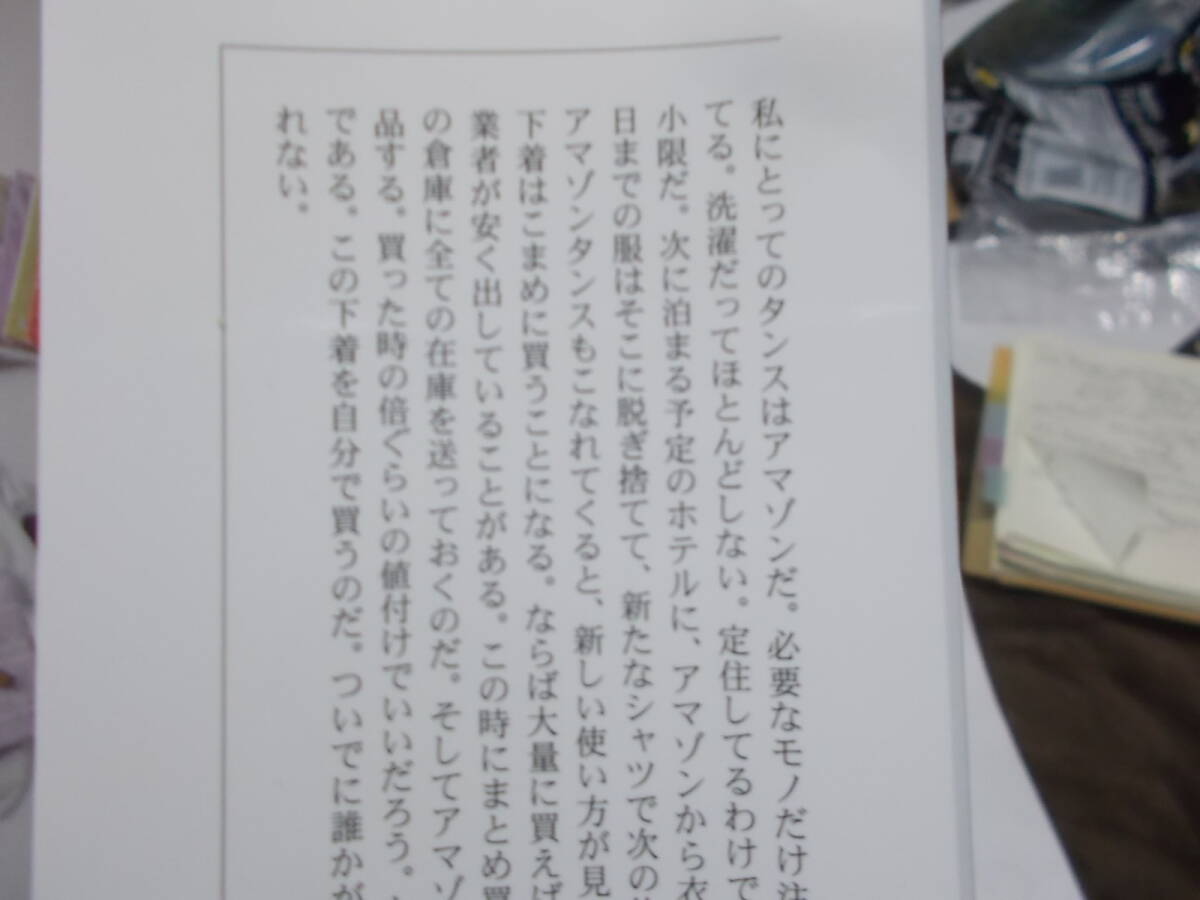 私にとってのタンスはアマゾンだ。必要なモノだけ注
てる。洗濯だってほとんどしない。定住してるわけで
小限だ。次に泊まる予定のホテルに、アマゾンから衣
日までの服はそこに脱ぎ捨てて、新たなシャツで次の
アマゾンタンスもこなれてくると、新しい使い方が見
下着はこまめに買うことになる。ならば大量に買えば
業者が安く出していることがある。この時にまとめ買
の倉庫に全ての在庫を送っておくのだ。そしてアマゾ
品する。買った時の倍ぐらいの値付けでいいだろう。
である。この下着を自分で買うのだ。ついでに誰かが
れない。